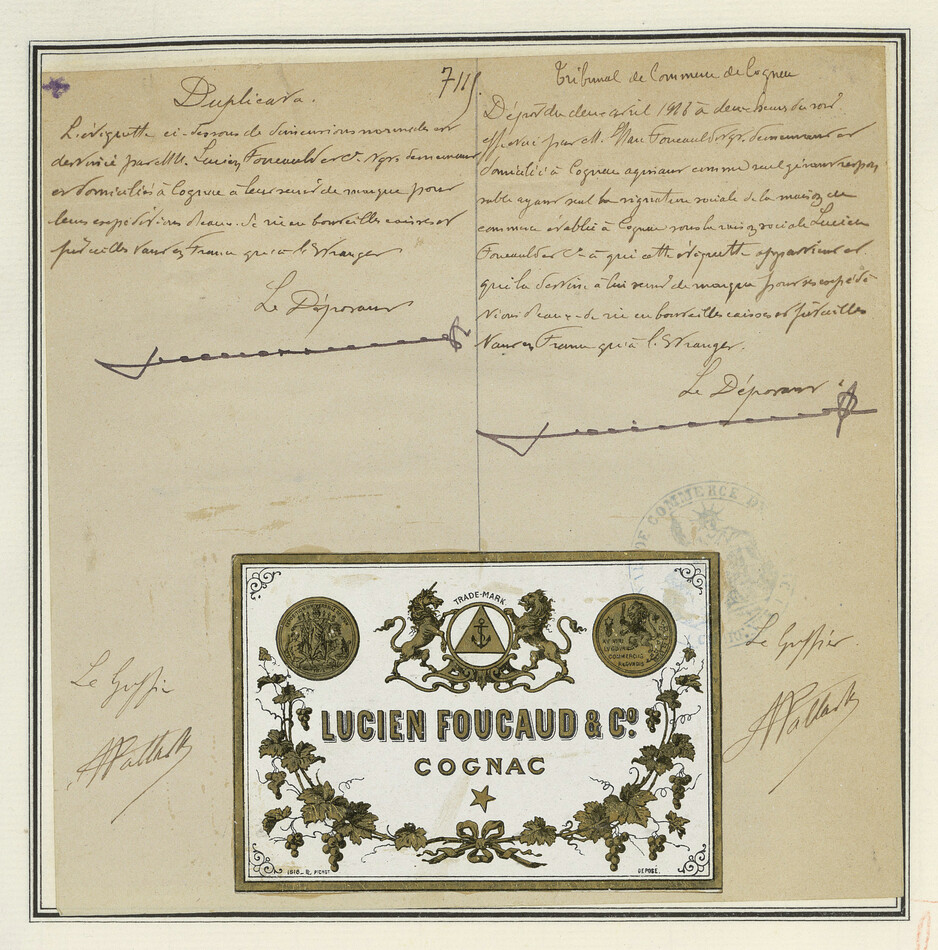 Duplicata.
L'étiquette ci-dessous de dimensions normales est
destinée par MM. Lucien Foucauld et Cie Ngts demeurant
et domiciliés à Cognac à leur servir de marque pour
leurs expéditions d'eaux-de-vie en bouteilles caisses et
futailles tant en France qu'à l'Etranger
Le Déposant
711
Tribunal de Commerce de Cognac
Dépôt du deux avril à deux heures du soir
effectué par M. Foucauld Ngt. demeurant et
domicilié à Cognac agissant comme seul gérant respon
sable ayant seul la signature sociale de la maison de
commerce établie à Cognac sous la raison sociale Lucien
Foucauld et Cie à qui cette étiquette appartient et
qui la destine à lui servir de marque pour ses expédi
tions d'eaux-de-vie en bouteilles caisses et futailles
tant en France qu'à l'Etranger.
Le Déposant
DE COMMERCE DE
Le Greffier
Le Greffier
TRADE-MARK
LUCIEN FOUCAUD & Co.
COGNAC
DÉPOSÉ.